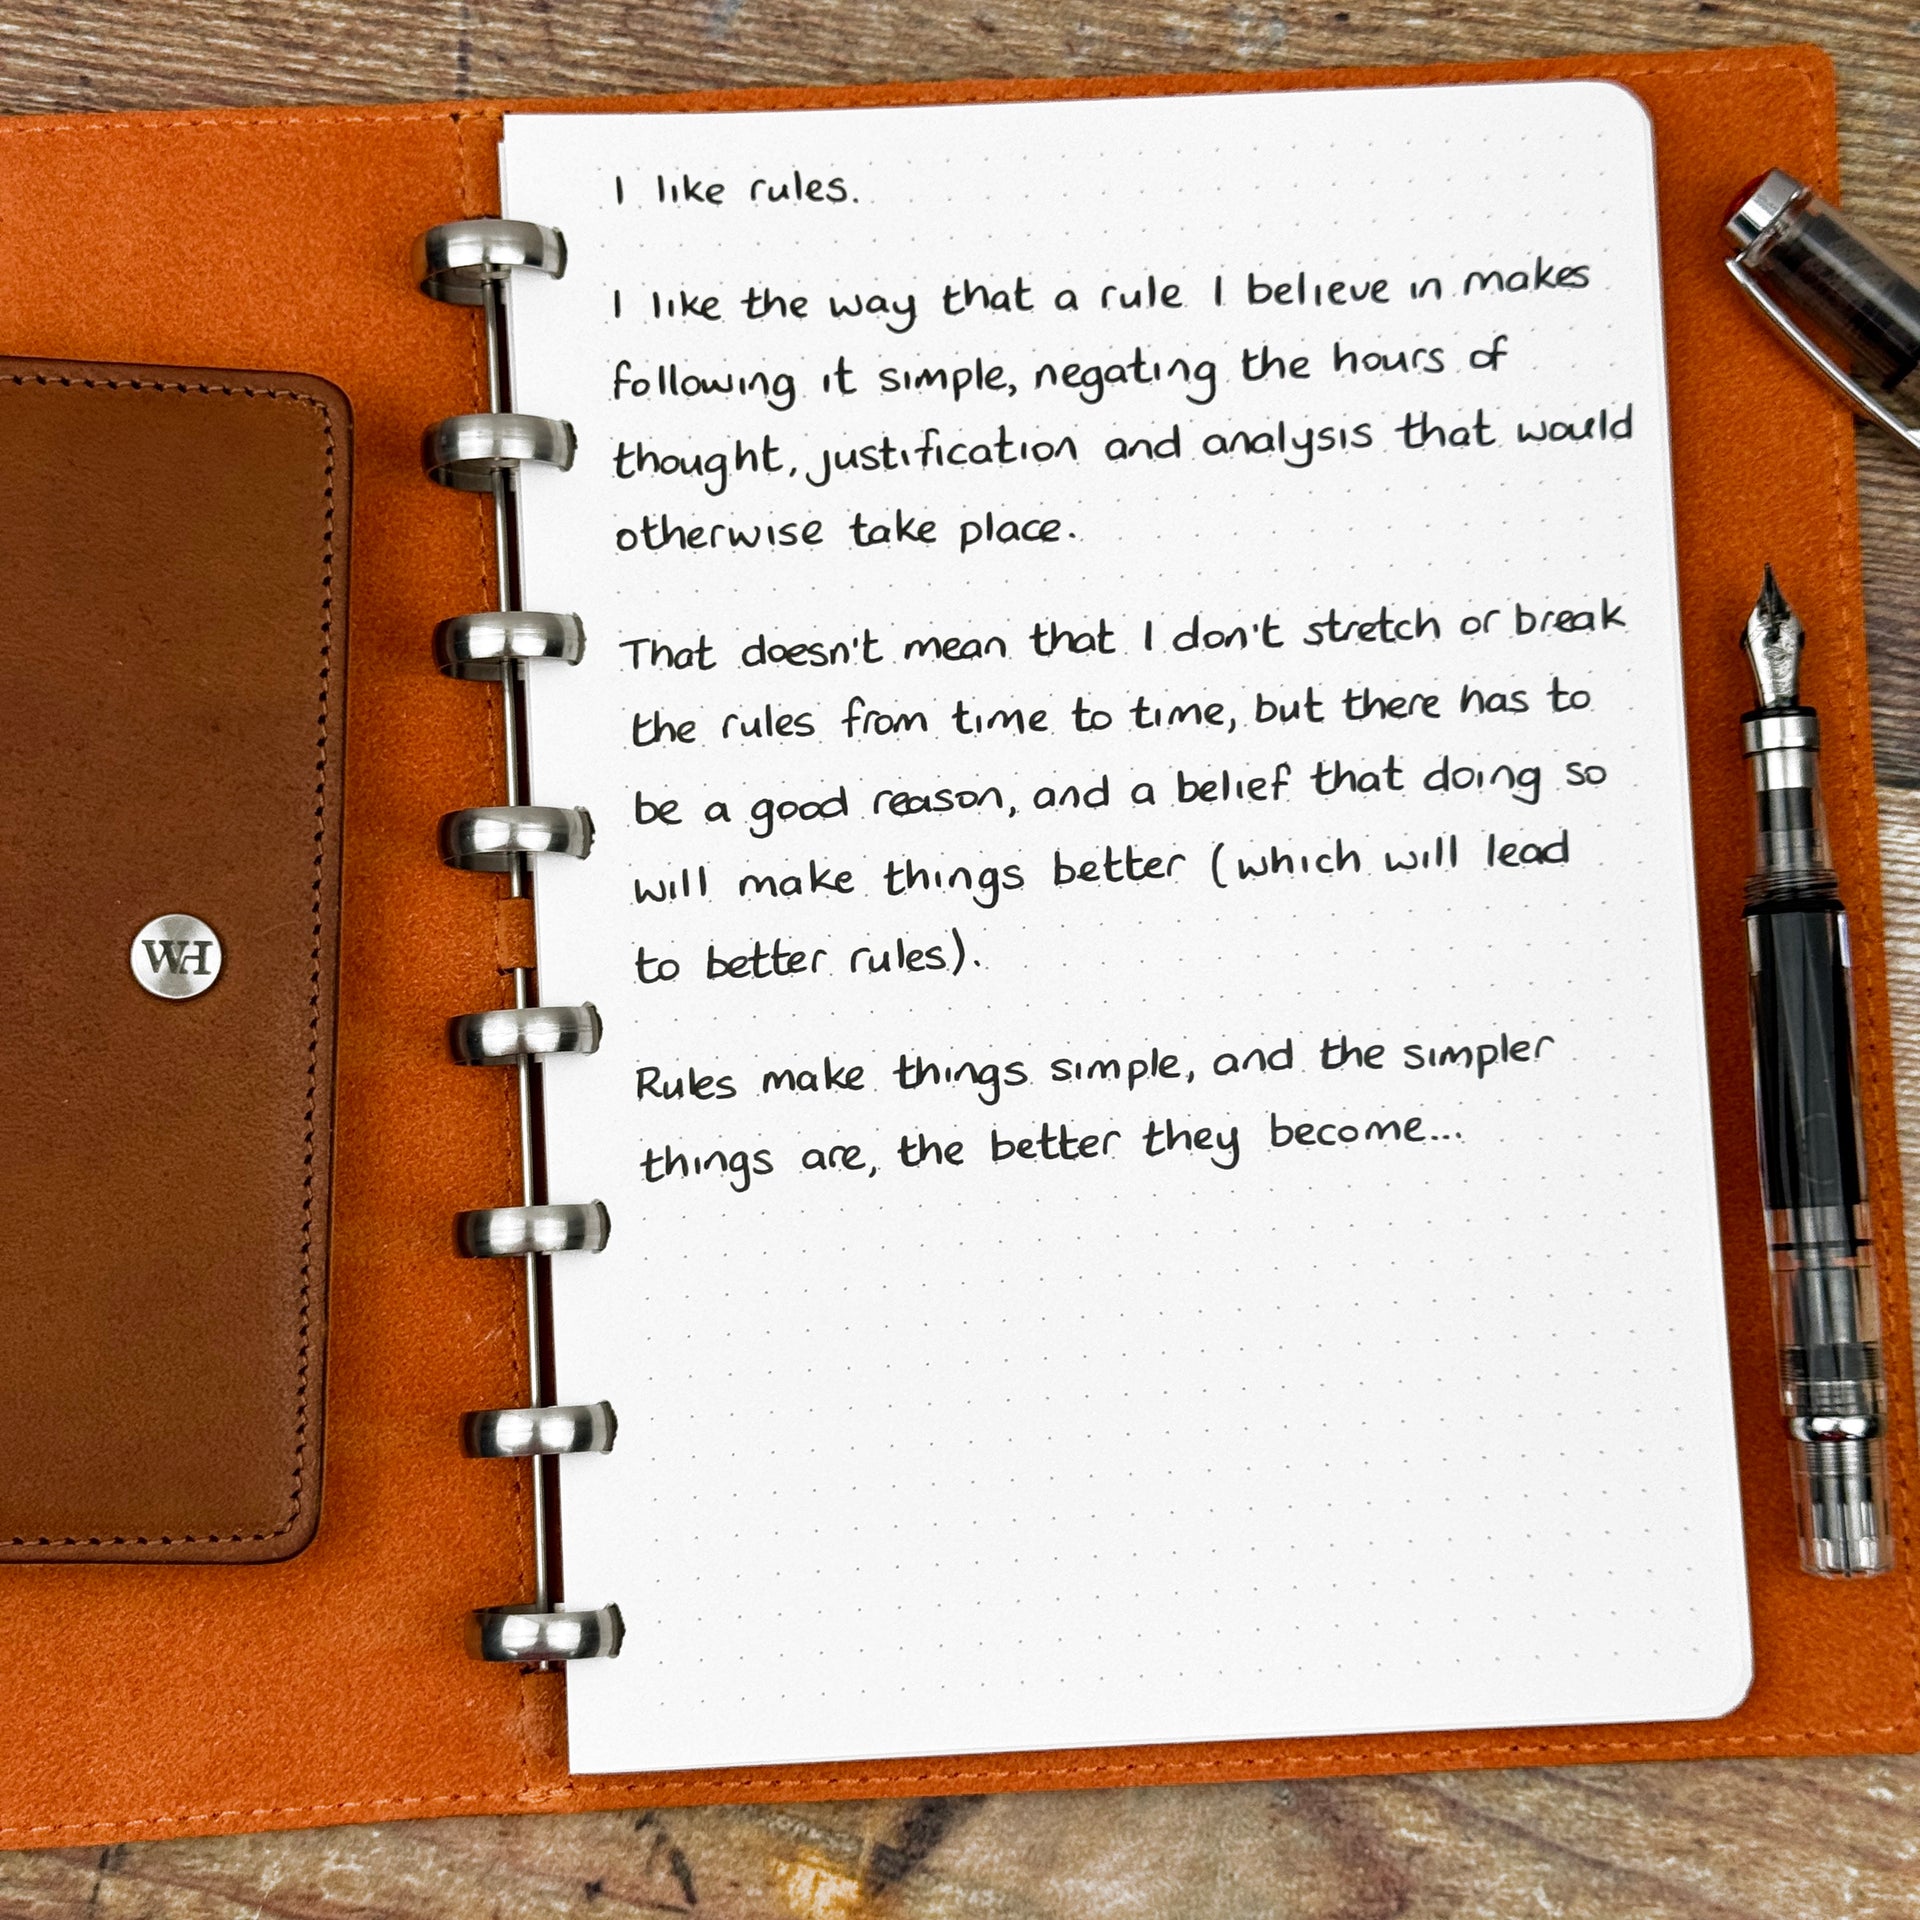 I like rules.
I like the way that a rule I believe in makes
following it simple, negating the hours of
thought, justification and analysis that would
otherwise take place.
That doesn't mean that I don't stretch or break
the rules from time to time, but there has to
be a good reason, and a belief that doing so
will make things better (which will lead
to better rules).
Rules make things simple, and the simpler
things are, the better they become...
WH